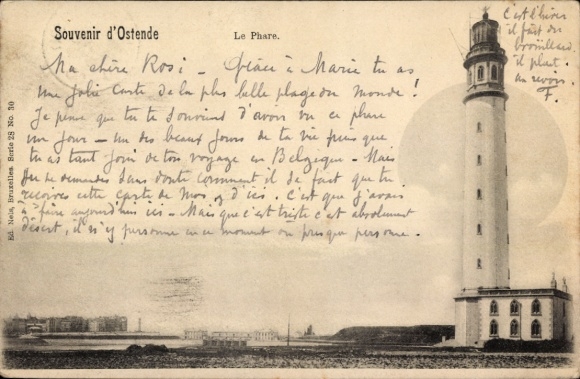 Souvenir d'Ostende
Le Phare.
Ma chère Rosi - grâce à Marie tu as
une jolie carte de la plus belle plage du monde !
Je pense que tu te souviens d'avoir vu ce phare
un jour - un des beaux jours de ta vie puis que
tu as tant joui de ton voyage en Belgique - Mais
tu te demandes sans doute comment il se fait que tu
reçoives cette carte de moi, d'ici. C'est que j'avais
à faire aujourd'hui ici - Mais que c'est triste c'est absolument
désert, il n'y personne en ce moment ou presque personne.
C'est l'hiver
il fait du
brouillard
il pleut.
au revoir.
F.
Ed. Nels, Bruxelles. Serie 28 No. 30